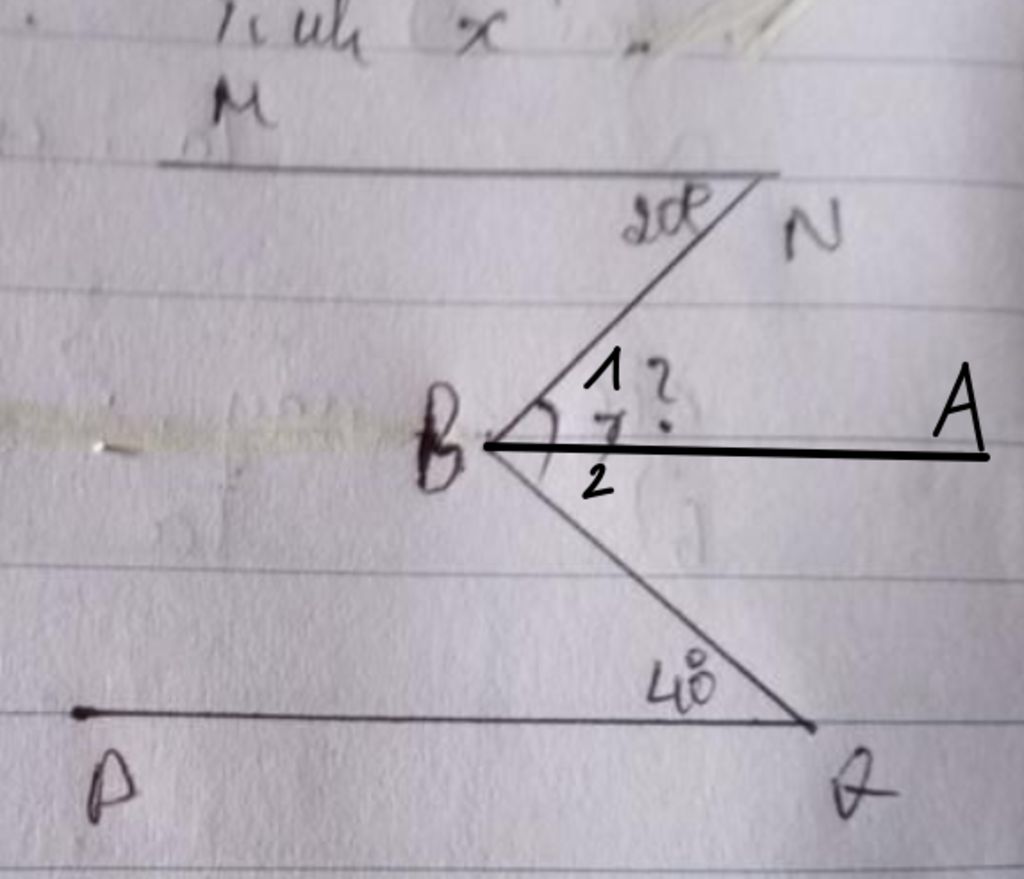 x
M
20°
N
1 ?
B
A
2
40°
P
Q